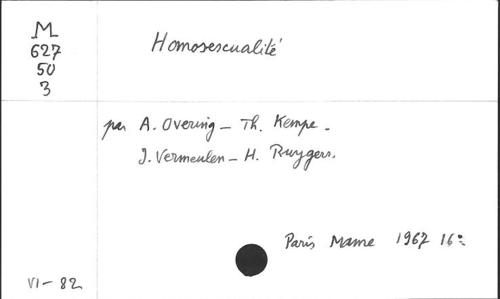 M
627
50
3
Homosexualité
par A. Overing – Th. Kempe.
J. Vermeulen – H. Ruygers.
Paris Mame 1967 16º
VI – 82